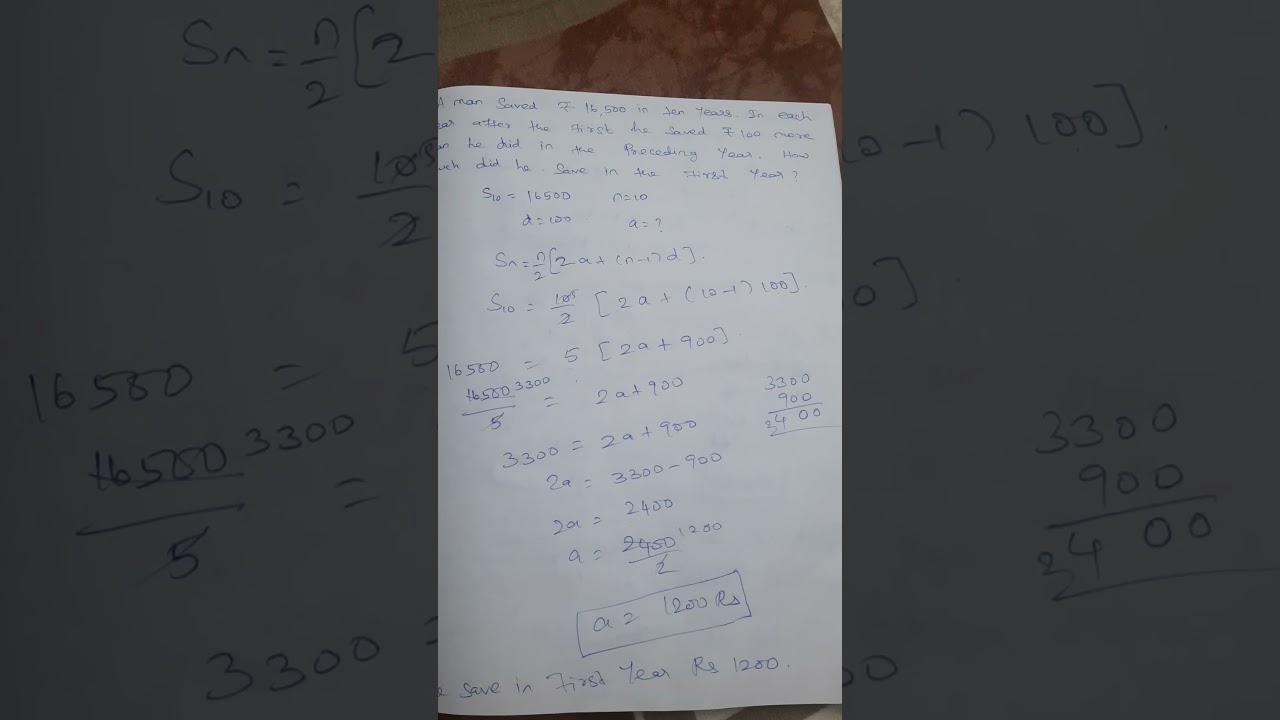 A man Saved ₹ 16,500 in ten Years. In each
ear after the First he Saved ₹ 100 more
an he did in the Preceding Year. How
uch did he Save in the First Year?
S10 = 16500 n=10
d=100 a=?
Sn = n/2 [2a+(n-1)d].
S10 = 10 5/2 [2a+(10-1)100].
16500 = 5 [2a+900].
16500 3300/5 = 2a+900
3300
900
2400
3300 = 2a+900
2a = 3300-900
2a = 2400
a = 2400 1200/2
a = 1200 Rs
e save in First Year Rs 1200.